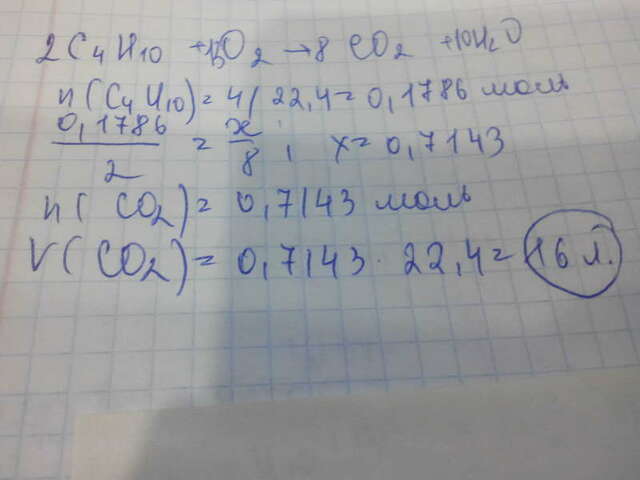 2C₄H₁₀ + 13O₂ → 8CO₂ + 10H₂O
n(C₄H₁₀) = 4/22,4 = 0,1786 моль
0,1786/2 = x/8 ; x = 0,7143
n(CO₂) = 0,7143 моль
V(CO₂) = 0,7143 · 22,4 = 16 л.